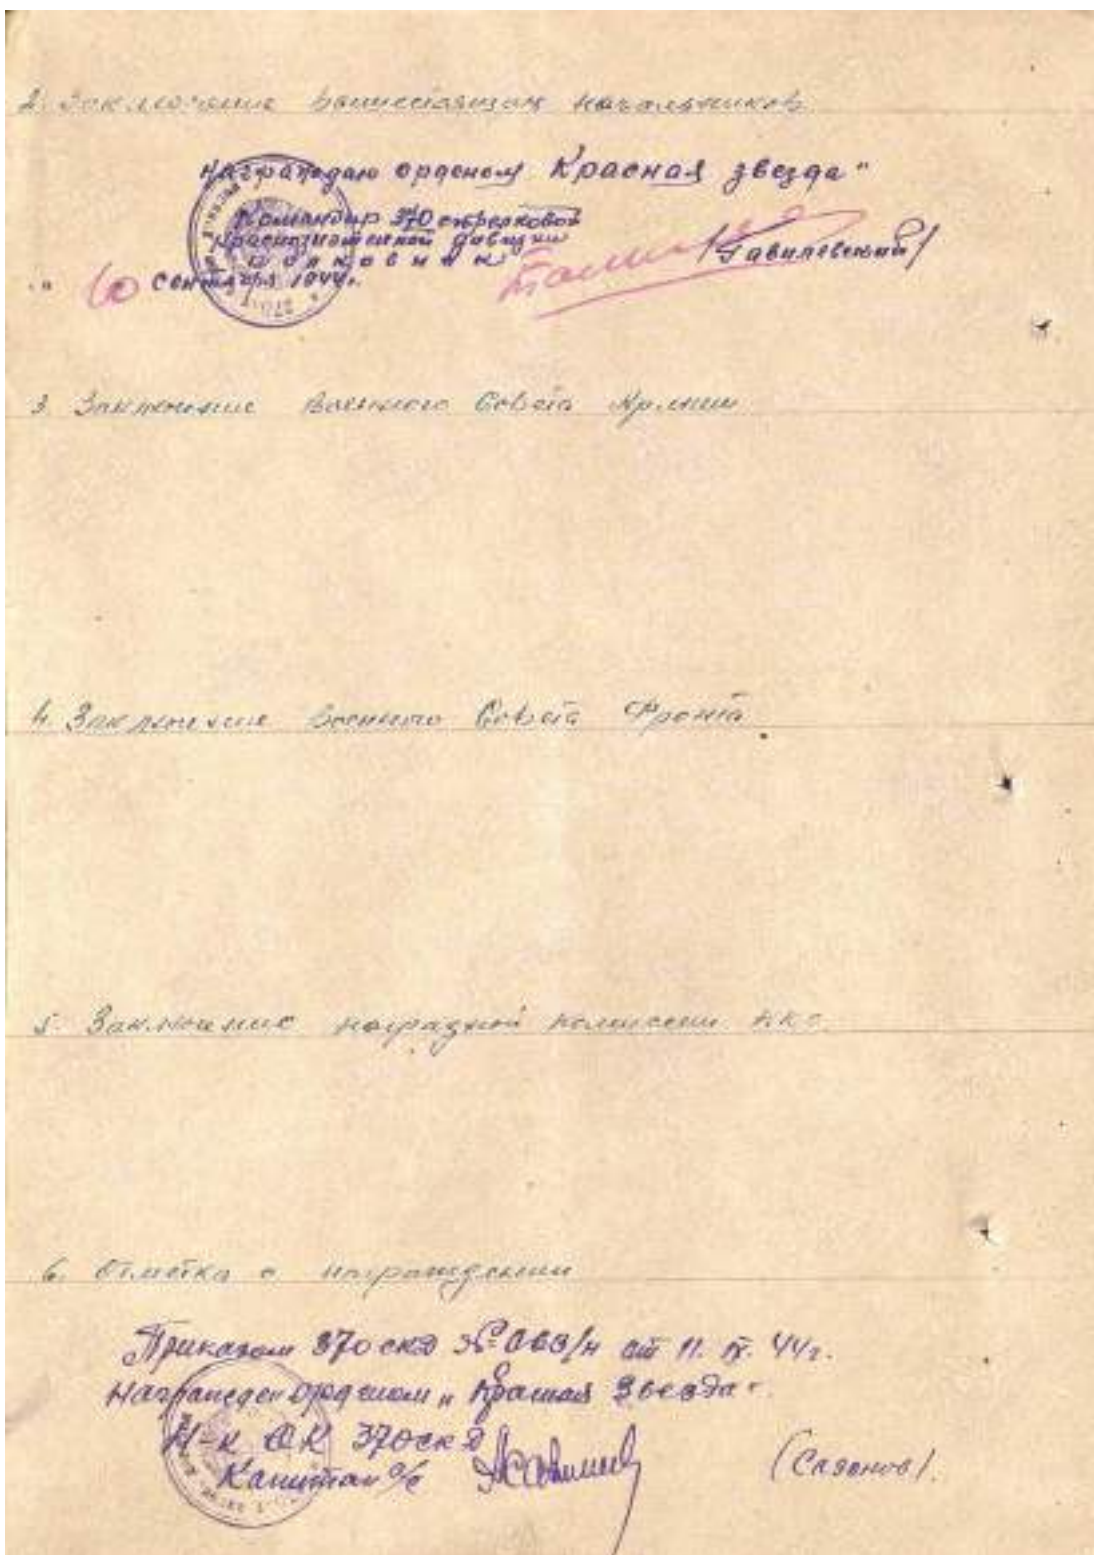 2. Заключение вышестоящих начальников
Награждаю орденом „Красная звезда"
Командир 370 стрелковой
Краснознаменной дивизии
полковник /Гавилевский/
" 10 Сентября 1944г.
3. Заключение Военного Совета Армии
4. Заключение Военного Совета Фронта
5. Заключение наградной комиссии НКО
6. Отметка о награждении
Приказом 370 скд № 063/н от 11. IX. 44г.
Награжден орденом „Красная Звезда".
Н-к ОК 370 скд
Капитан а/с (Сазонов).